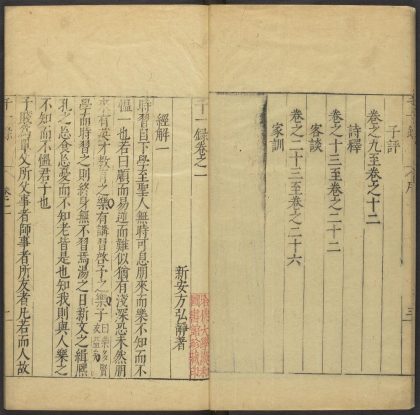 子評
卷之九至卷之十二
詩釋
卷之十三至卷之二十二
客談
卷之二十三至卷之二十六
家訓
千一錄卷之一
新安方弘靜著
經解一
時習自下學至聖人無時可息朋來而樂不知而不
慍一也若曰順而易逆而難似猶有淺深恐未然朋
來有英才教育之樂有講習啓予之樂
學而時習之則終身無不習焉湯之日新文之緝熙
孔之忘食忘憂而不知老皆是也知我則與人樂之
不知而不慍君子也
子賤為單父所父事者師事者所友者凡若而人故
哈佛大學漢和
圖書館珍藏印